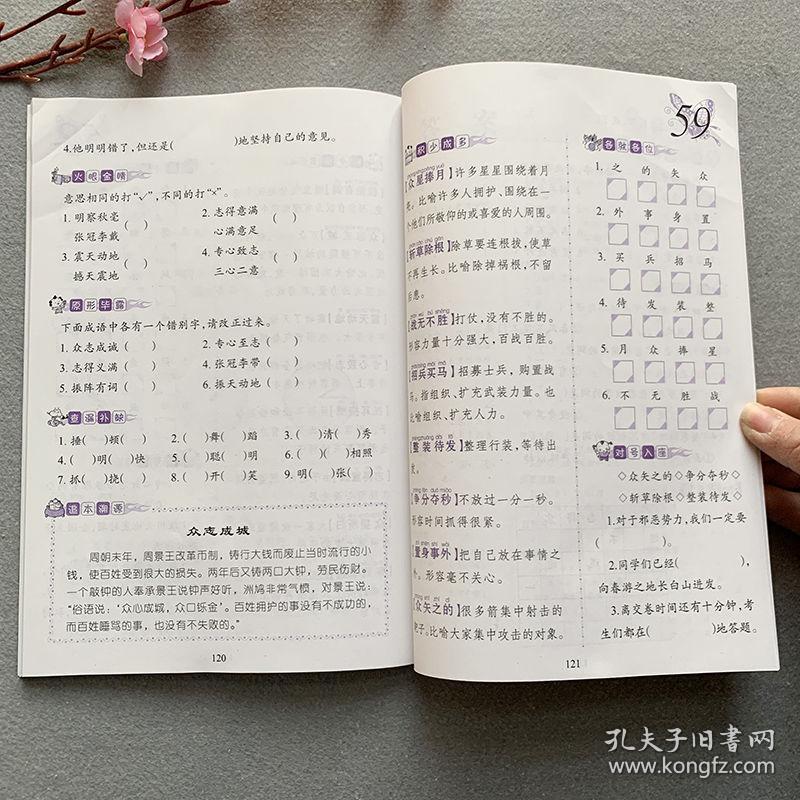 4.他明明错了,但还是(　　)地坚持自己的意见。
火眼金睛
意思相同的打“√”,不同的打“×”。
1. 明察秋毫
张冠李戴 (　)
2. 志得意满
心满意足 (　)
3. 震天动地
撼天震地 (　)
4. 专心致志
三心二意 (　)
原形毕露
下面成语中各有一个错别字,请改正过来。
1. 众志成诚 (　) 2. 专心至志 (　)
3. 志得义满 (　) 4. 张冠李带 (　)
5. 振阵有词 (　) 6. 振天动地 (　)
查漏补缺
1. 捶(　)顿(　) 2. (　)舞(　)蹈 3. (　)清(　)秀
4. (　)明(　)快 5. (　)聪(　)明 6. (　)(　)相照
7. 抓(　)挠(　) 8. (　)开(　)笑 9. 明(　)张(　)
追本溯源
众志成城
周朝末年,周景王改革币制,铸行大钱而废止当时流行的小
钱,使百姓受到很大的损失。两年后又铸两口大钟,劳民伤财。
一个敲钟的人奉承景王说钟声好听,洲鸠非常气愤,对景王说:
“俗语说:‘众心成城,众口铄金’。百姓拥护的事没有不成功的,
而百姓唾骂的事,也没有不失败的。”
120
59
积少成多
【众星捧月】许多星星围绕着月
亮。比喻许多人拥护、围绕在一
个他们所敬仰的或喜爱的人周围。
【斩草除根】除草要连根拔,使草
不再生长。比喻除掉祸根,不留
后患。
【战无不胜】打仗,没有不胜的。
形容力量十分强大,百战百胜。
【招兵买马】招募士兵,购置战
马。指组织、扩充武装力量。也
比喻组织、扩充人力。
【整装待发】整理行装,等待出
发。
【争分夺秒】不放过一分一秒。
形容时间抓得很紧。
【置身事外】把自己放在事情之
外。形容毫不关心。
【众矢之的】很多箭集中射击的
靶子。比喻大家集中攻击的对象。
121
各就各位
1. 之 的 矢 众
2. 外 事 身 置
3. 买 兵 招 马
4. 待 发 装 整
5. 月 众 捧 星
6. 不 无 胜 战
对号入座
◇众矢之的◇争分夺秒◇
◇斩草除根◇整装待发◇
1.对于邪恶势力,我们一定要
(　　)。
2.同学们已经(　　),
向春游之地长白山进发。
3.离交卷时间还有十分钟,考
生们都在(　　)地答题。
孔夫子旧书网
www.kongfz.com